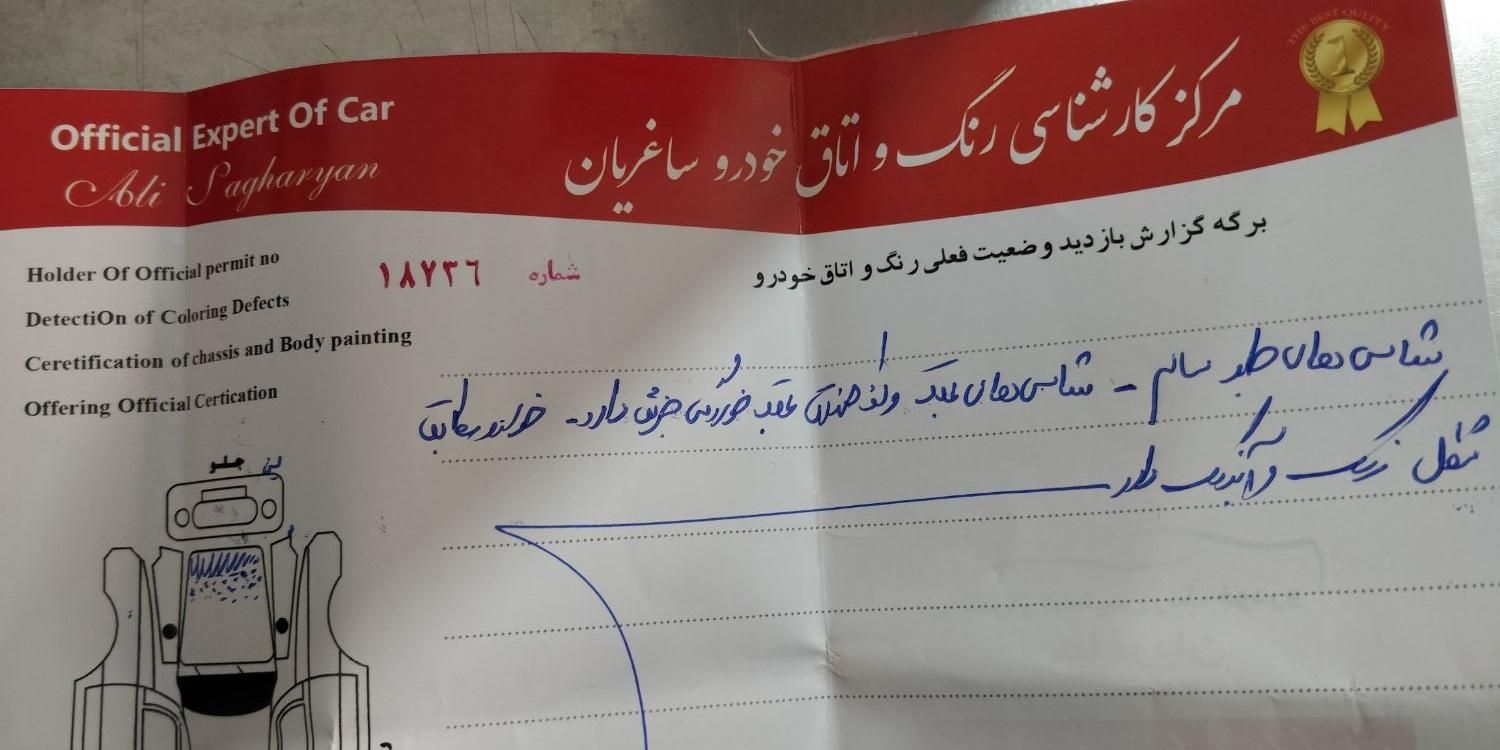 THE BEST QULITY
1
Official Expert Of Car
Ali Sagharyan
مرکز کارشناسی رنگ و اتاق خودرو ساغریان
برگه گزارش بازدید وضعیت فعلی رنگ و اتاق خودرو
Holder Of Official permit no
DetectiOn of Coloring Defects
Ceretification of chassis and Body painting
Offering Official Certication
شماره ۱۸۷۳۶
شاسی های جلو سالم - شاسی های عقب و کف صندوق عقب خوردگی جزئی دارد - خودرو مطابق
شکل رنگ و آبرنگ دارد
جلو